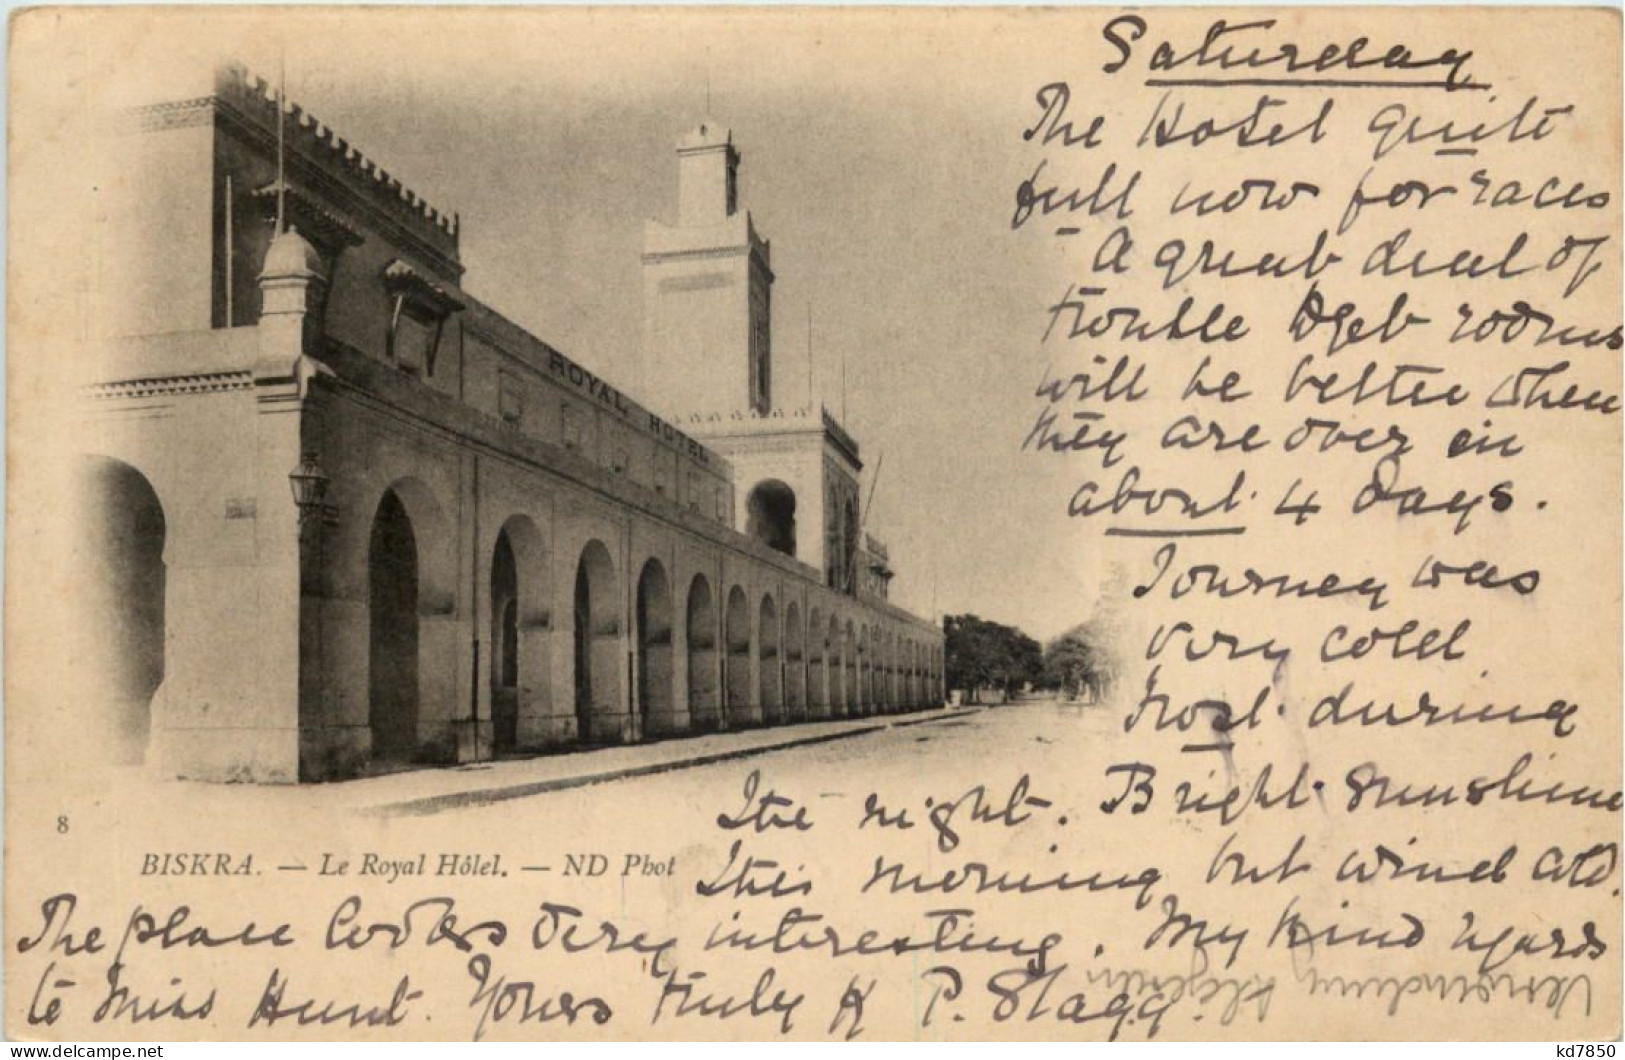 Saturday
The Hotel quite
full now for races
A great deal of
trouble to get rooms
will be better when
they are over in
about 4 days.
Journey was
very cold
Frost during
the night. Bright sunshine
this morning but wind cold.
The place looks very interesting. My kind regards
to Miss Hunt. Yours truly K P. Stagg.
ROYAL HOTEL
8
BISKRA. — Le Royal Hôtel. — ND Phot
kd7850